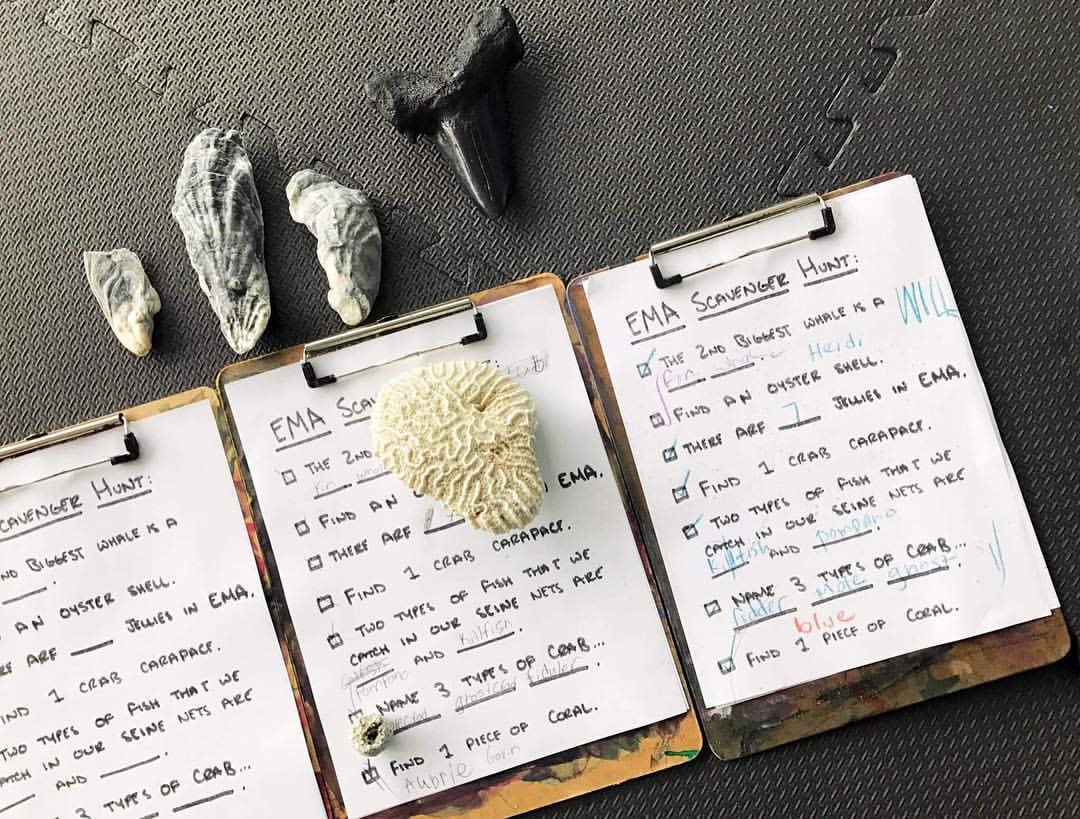 CAVENGER HUNT:
ND BIGGEST WHALE IS A
AN OYSTER SHELL.
RE ARE ___ JELLIES IN EMA.
IND 1 CRAB CARAPACE.
TWO TYPES OF FISH THAT WE
CATCH IN OUR SEINE NETS ARE
___ AND ___.
3 TYPES OF CRAB...
EMA SCA
THE 2ND
Fin whale
FIND AN O
EMA.
THERE ARE
FIND 1 CRAB CARAPACE.
TWO TYPES OF FISH THAT WE
CATCH IN OUR SEINE NETS ARE
AND Killfish.
Pompano
NAME 3 TYPES OF CRAB...
ghostcrab fiduler
FIND 1 PIECE OF CORAL.
Aubrie Gavin
EMA SCAVENGER HUNT:
WILL
THE 2ND BIGGEST WHALE IS A
fin whale. Heidi
FIND AN OYSTER SHELL.
THERE ARE 7 JELLIES IN EMA.
FIND 1 CRAB CARAPACE.
TWO TYPES OF FISH THAT WE
CATCH IN OUR SEINE NETS ARE
Killfish AND pompano.
NAME 3 TYPES OF CRAB...
fidder mole ghost.
blue
FIND 1 PIECE OF CORAL.